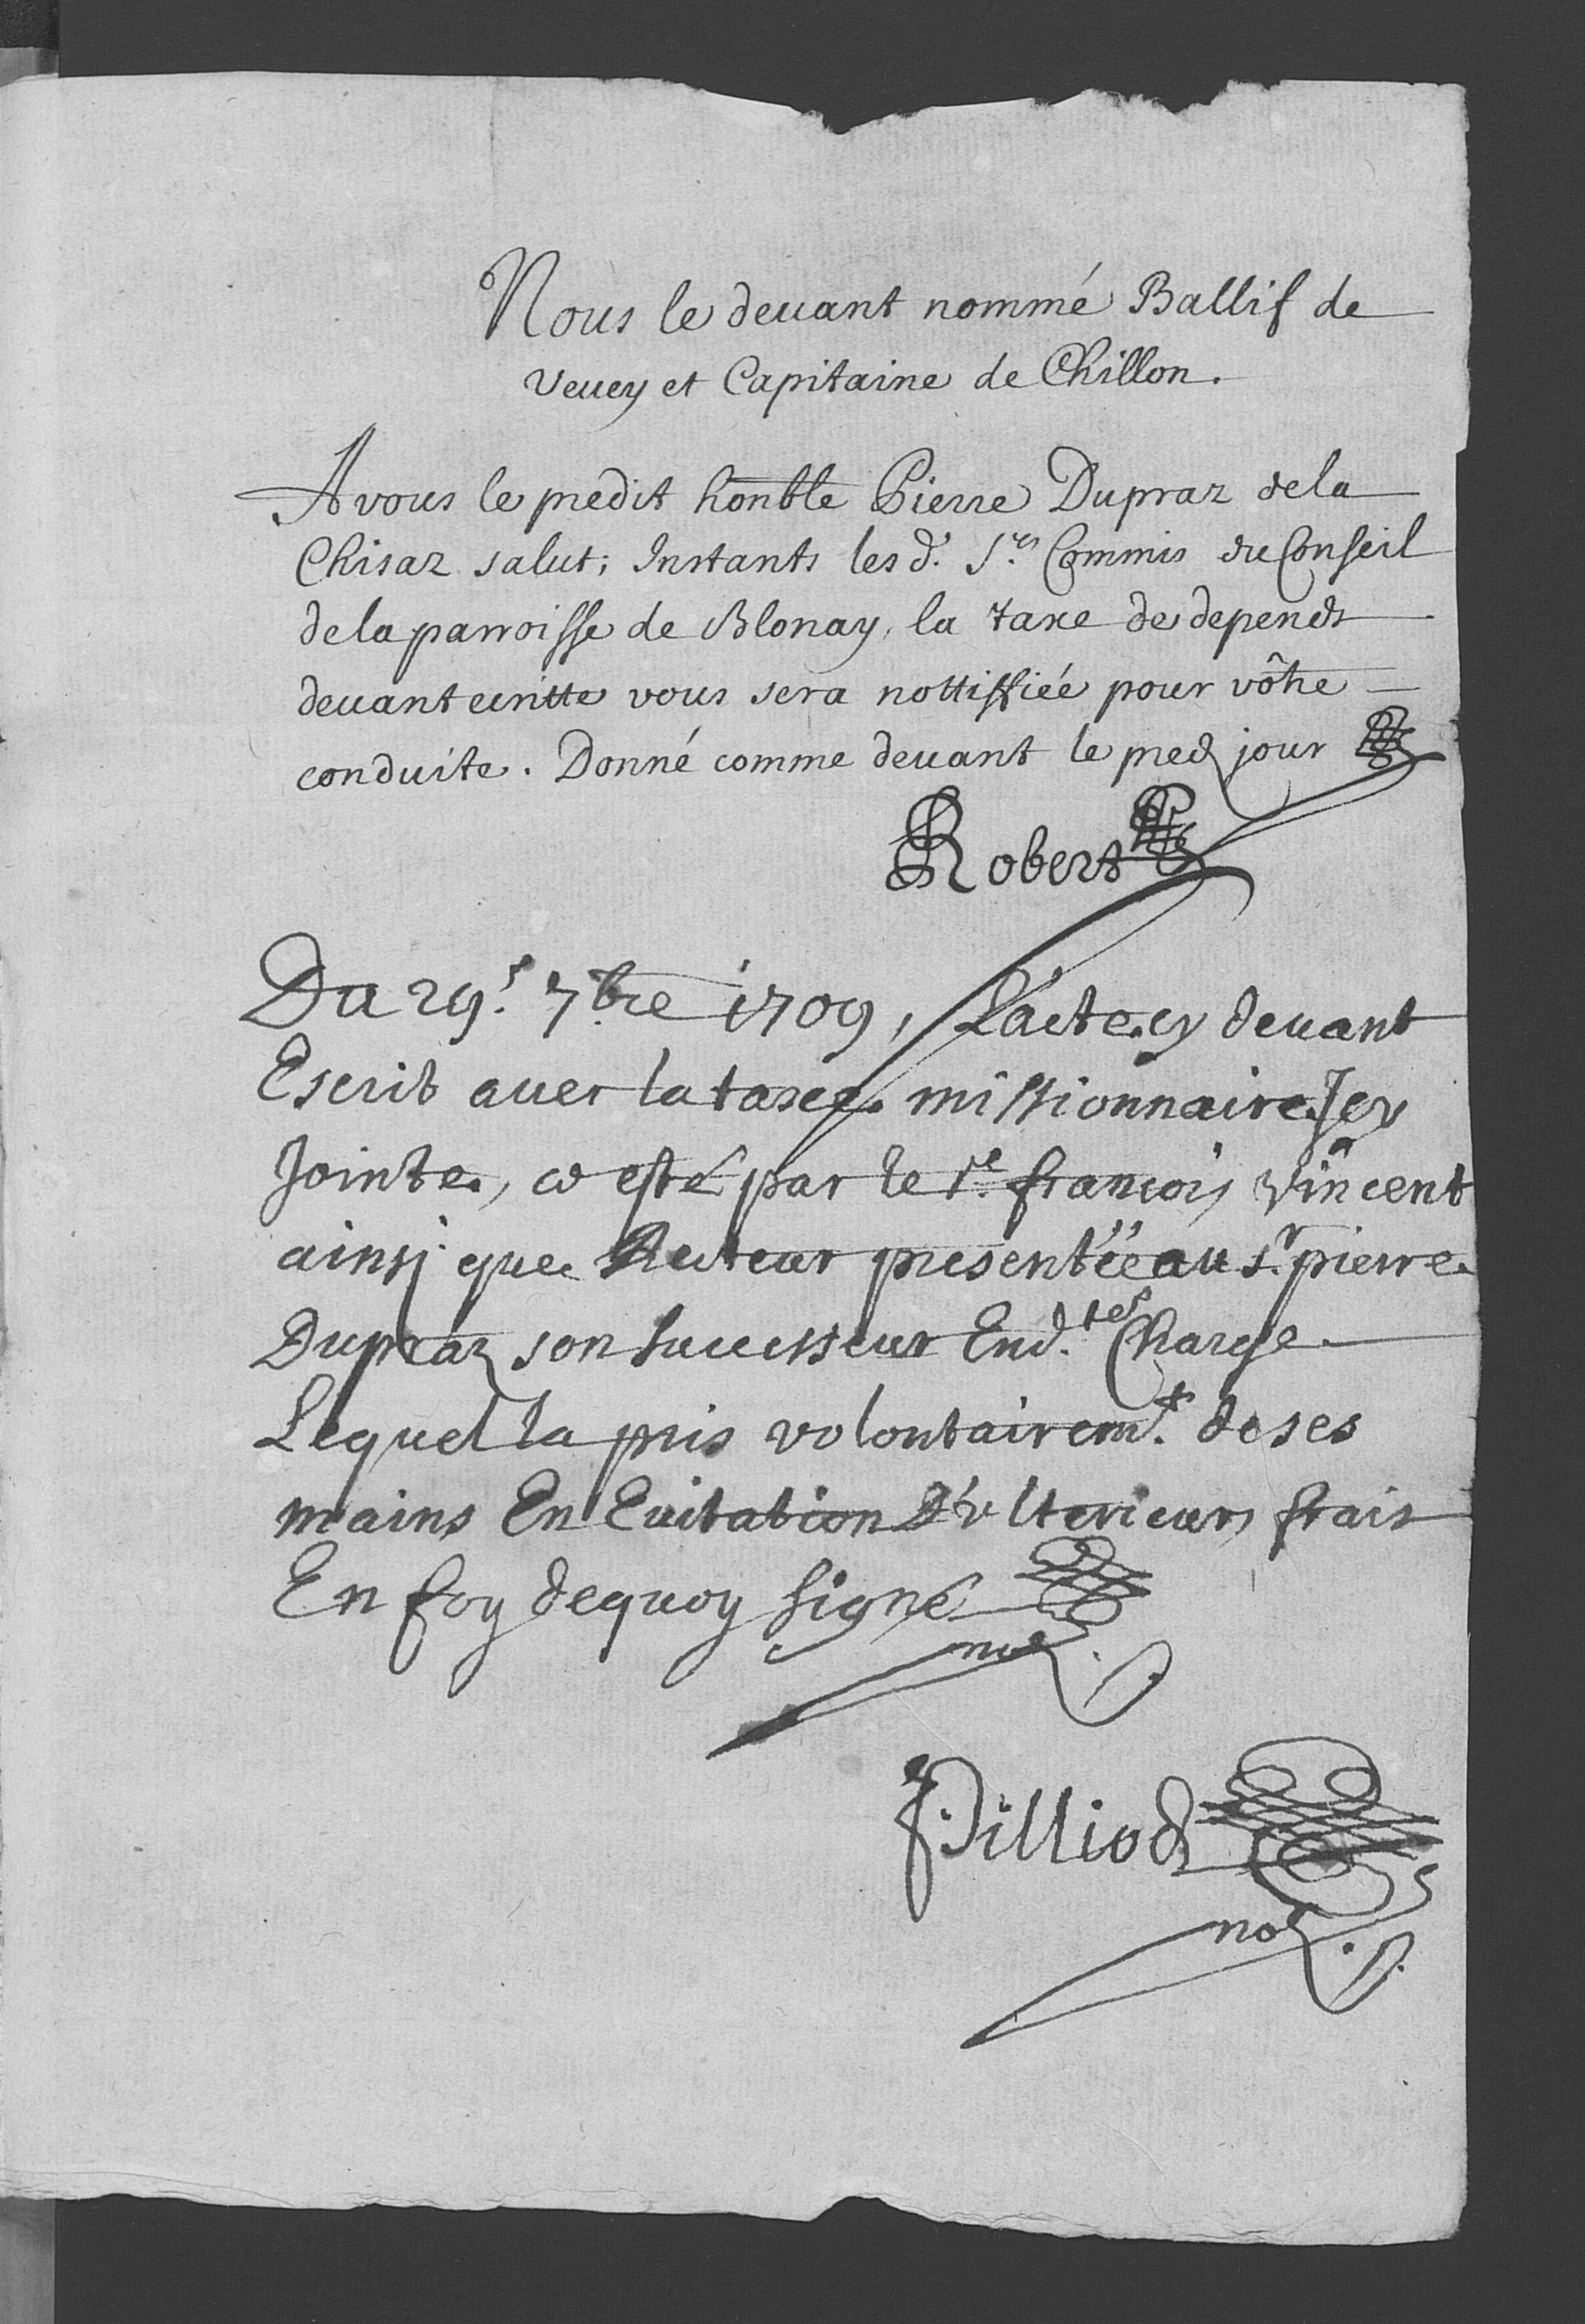 Nous le deuant nommé Ballif de
Veuey et Capitaine de Chillon.
A vous le predit honble Pierre Dupraz de la
Chisaz salut; Instants les d. Srs Commis du Conseil
de la parroisse de Blonay, la taxe de depends
deuant ecritte vous sera nottiffiée pour vôtre
conduite. Donné comme deuant le pred jour
Robert
Du 29e. 7bre 1709, L'acte cy deuant
Escrit auec la taxe missionnaire Icy
Jointe, a esté par le Sr. françois Vincent
ainsi que Recteur presentée au Sr. pierre
Dupraz son successeur End.tes Charge
Lequel la pris volontairemt. de ses
mains En Euitation D'vlterieurs frais
En foy dequoy signé
not.
Dilliod
not.